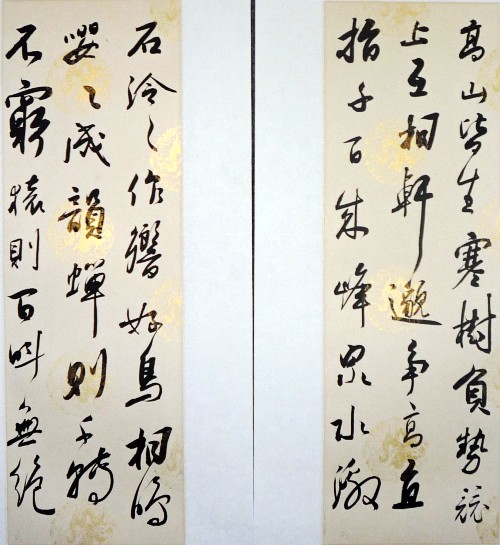 高山皆生寒樹負勢競
上互相軒邈争高直
指千百成峰泉水激
石泠〻作響好鳥相鳴
嚶〻成韻蟬則千轉
不窮猿則百叫無絶